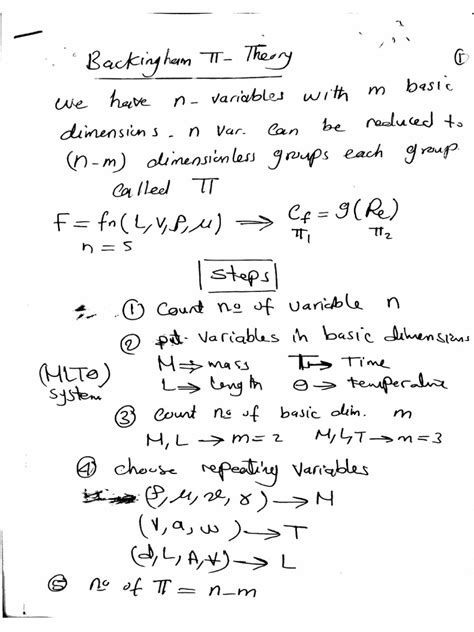 Backingham π- Theory
①
we have n- variables with m basic
dimensions. n var. can be reduced to
(n-m) dimensionless groups each group
called π
F = fn(L,V,ρ,μ) ⟹ Cf = g(Re)
n = 5 π1 π2
Steps
① Count no of variable n
② put variables in basic dimensions
M ⇒ mass T → Time
(MLTθ) L → length θ → temperature
system
③ count no of basic dim. m
M,L → m=2 M,L,T → m=3
④ choose repeating variables
(ρ, μ, 𝜈, γ) → M
(V, a, ω) → T
(d, L, A, V) → L
⑤ no of π = n-m